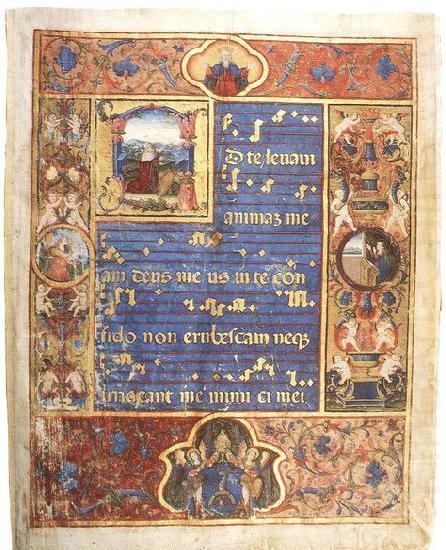 AD te leuaui
animaz me
am deus me us in te con
fido non erubescam neqȝ
irrideant me inimi ci mei